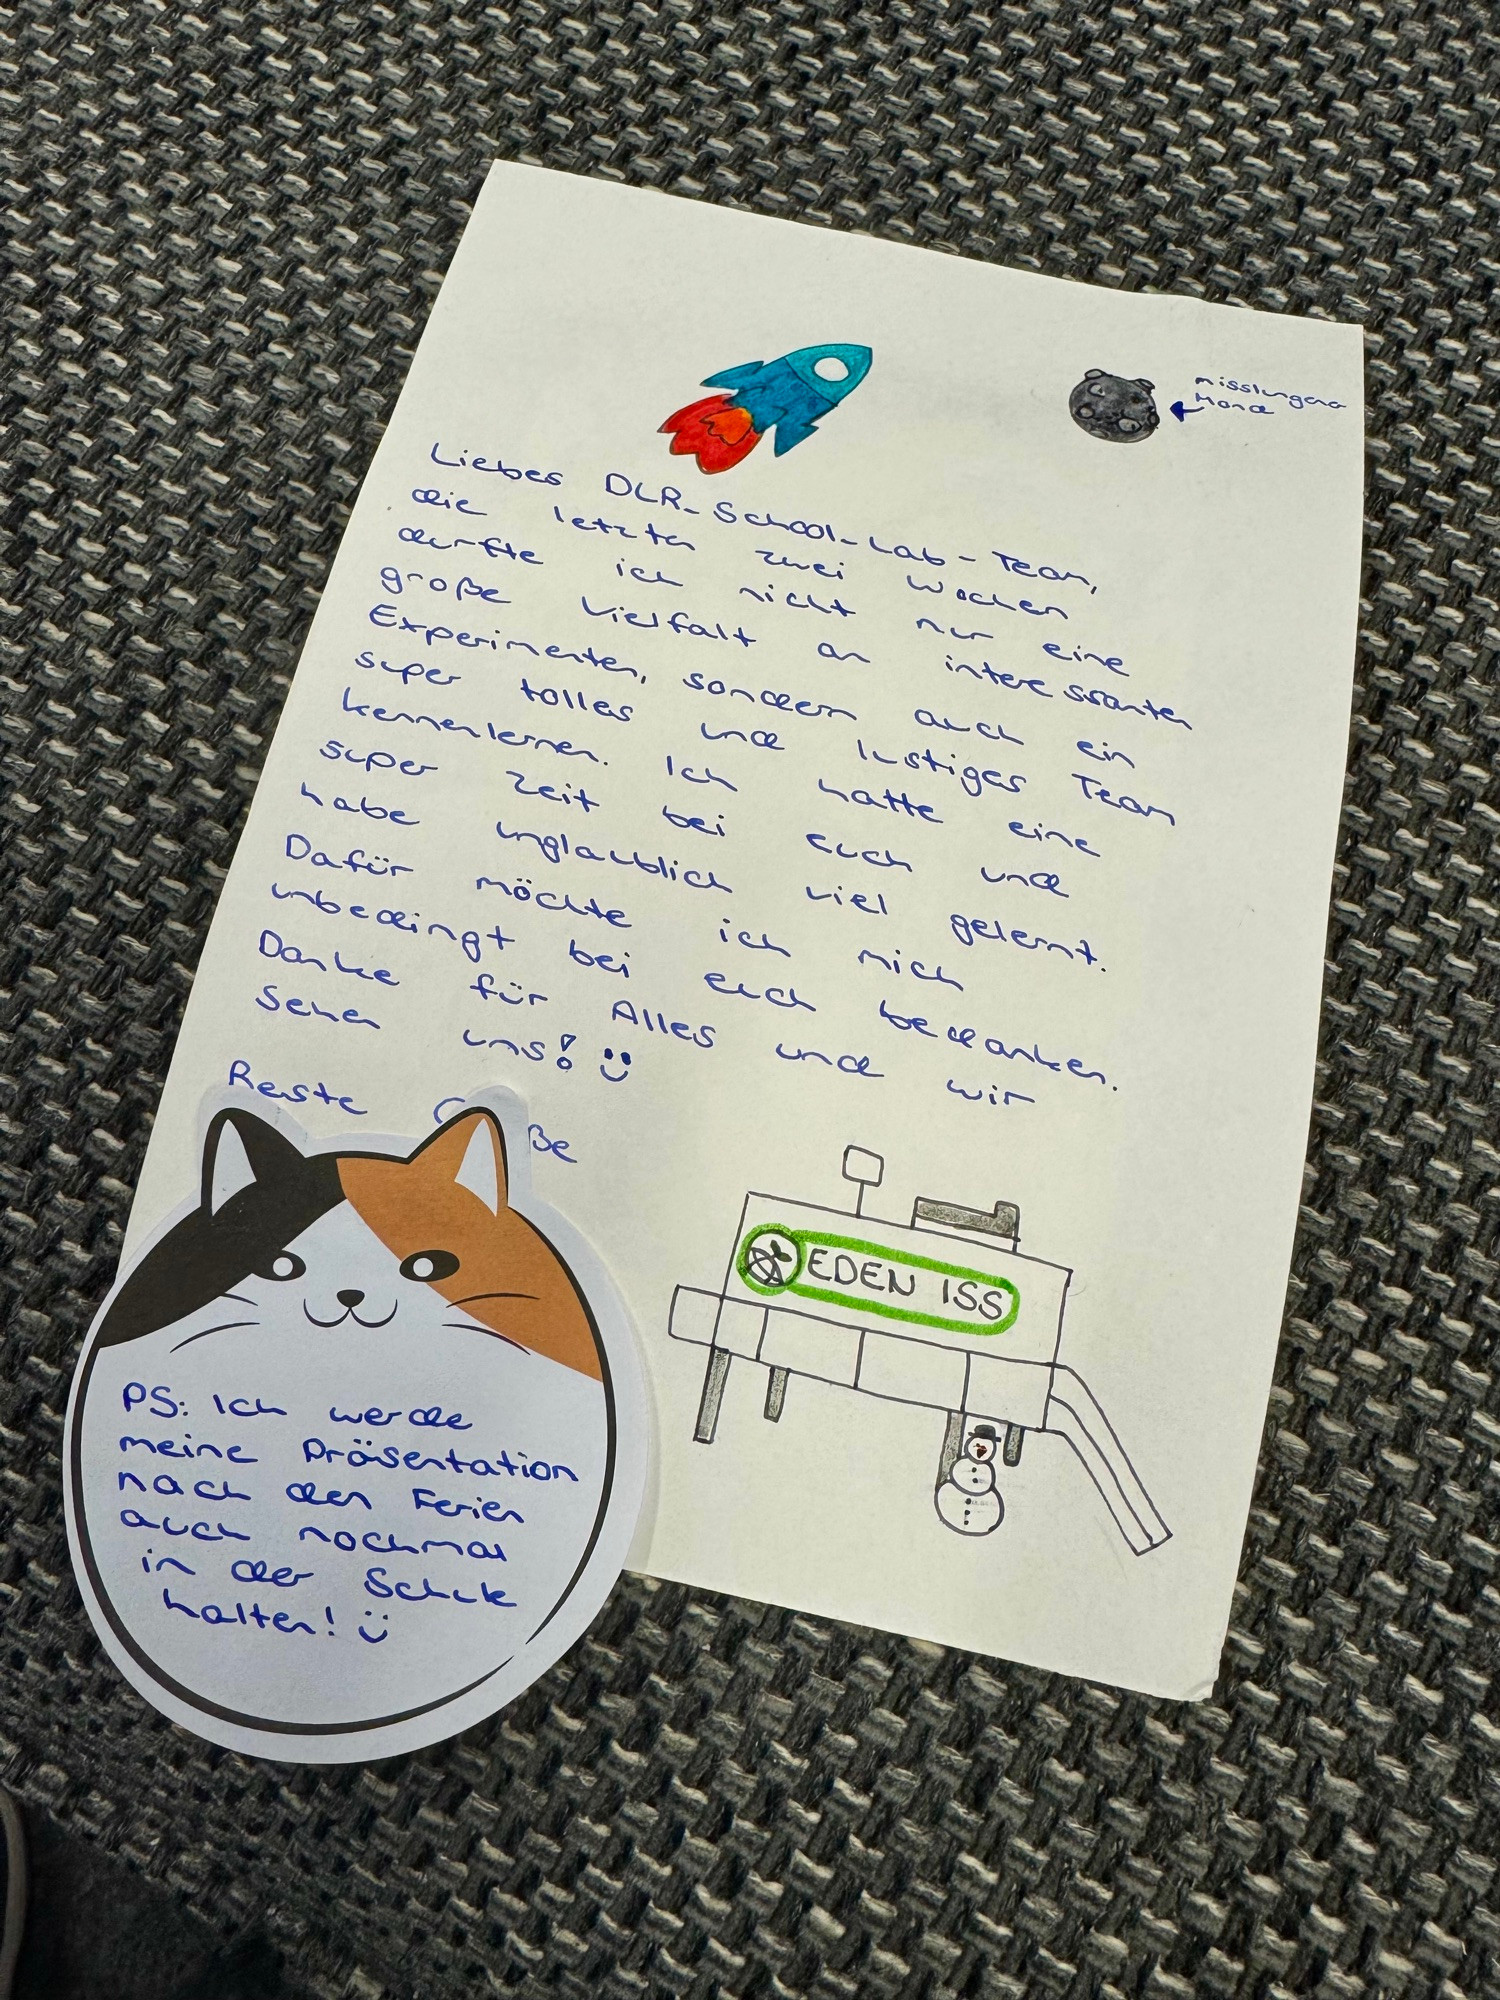 misslungener
Mond
Liebes DLR-School-Lab-Team,
die letzten zwei Wochen
durfte ich nicht nur eine
große Vielfalt an interessanten
Experimenten, sondern auch ein
super tolles und lustiges Team
kennenlernen. Ich hatte eine
super Zeit bei euch und
habe unglaublich viel gelernt.
Dafür möchte ich mich
unbedingt bei euch bedanken.
Danke für Alles und wir
sehen uns!
Beste
EDEN ISS
PS: Ich werde
meine Präsentation
nach den Ferien
auch nochmal
in der Schule
halten!